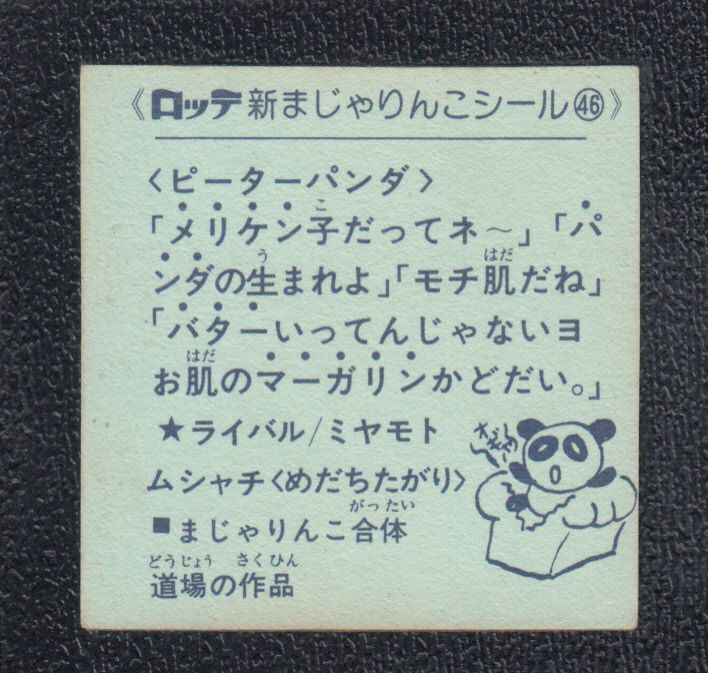 《ロッテ新まじゃりんこシール㊻》
〈ピーターパンダ〉
「メリケン子だってネ〜」「パ
ンダの生まれよ」「モチ肌だね」
「バターいってんじゃないヨ
お肌のマーガリンかどだい。」
★ライバル/ミヤモト
ムシャチ〈めだちたがり〉
■まじゃりんこ合体
道場の作品